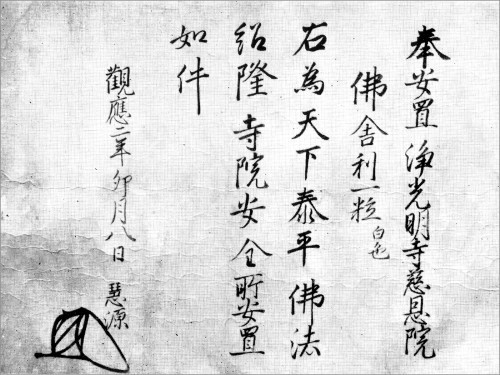 奉安置 浄光明寺慈恩院
佛舎利一粒白色
右為天下泰平佛法
紹隆寺院安全所安置
如件
觀應二年卯月八日 慧源